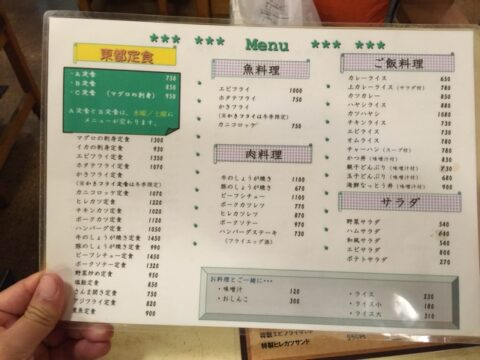 ★★★ ★★★ Menu ★★★ ★★★
東都定食
・A 定食 750
・B 定食 850
・C 定食 (マグロの刺身) 950
A 定食とB 定食は、水曜／土曜に
メニューが変わります。
マグロの刺身定食 1300
イカの刺身定食 930
エビフライ定食 1350
ホタテフライ定食 1070
かきフライ定食
(※かきフライ定食は冬季限定)
カニコロッケ定食 1070
ヒレカツ定食 1220
チキンカツ定食 1020
ポークカツ定食 1120
ハンバーグ定食 1050
牛のしょうが焼き定食 1450
豚のしょうが焼き定食 990
ビーフシチュー定食 1450
ポークソテー定食 1320
野菜炒め定食 950
塩鮭定食 850
さんま開き定食 730
アジフライ定食 820
煮魚定食 900
魚料理
エビフライ 1000
ホタテフライ 750
かきフライ
(※かきフライは冬季限定)
カニコロッケ 750
肉料理
牛のしょうが焼き 1100
豚のしょうが焼き 670
ビーフシチュー 1100
ポークカツレツ 770
ヒレカツレツ 870
ポークソテー 970
ハンバーグステーキ 730
(フライエッグ添)
ご飯料理
カレーライス 650
上カレーライス (サラダ付) 780
カツカレー 850
ハヤシライス 880
カツハヤシ 1080
チキンライス 730
エビライス 780
オムライス 780
チャーハン (スープ付) 780
かつ丼 (味噌汁付) 830
親子どんぶり (味噌汁付) 730
玉子どんぶり (味噌汁付) 680
海鮮なっとう丼 (味噌汁付) 900
サラダ
野菜サラダ 540
ハムサラダ 640
和風サラダ 540
エビサラダ 800
ポテトサラダ 270
お料理とご一緒に…
・味噌汁 120
・おしんこ 300
・ライス 230
・ライス小 180
・ライス大 310
特製ヒレカツサンド